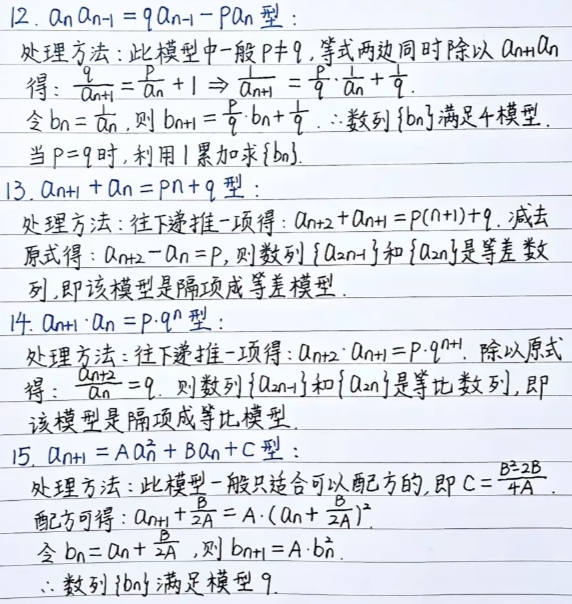 12. aₙaₙ₋₁ = qaₙ₋₁ - paₙ 型：
处理方法：此模型中一般 P≠q, 等式两边同时除以 aₙ₊₁aₙ
得： q/aₙ₊₁ = p/aₙ + 1 ⇒ 1/aₙ₊₁ = p/q · 1/aₙ + 1/q.
令 bₙ = 1/aₙ, 则 bₙ₊₁ = p/q · bₙ + 1/q. ∴数列{bₙ}满足4模型.
当 P=q 时, 利用1累加求{bₙ}.
13. aₙ₊₁ + aₙ = pn + q 型：
处理方法：往下递推一项得：aₙ₊₂ + aₙ₊₁ = p(n+1)+q. 减去
原式得：aₙ₊₂ - aₙ = p, 则数列{a₂ₙ₋₁}和{a₂ₙ}是等差数
列, 即该模型是隔项成等差模型.
14. aₙ₊₁ · aₙ = p·qⁿ 型：
处理方法：往下递推一项得：aₙ₊₂ · aₙ₊₁ = p·qⁿ⁺¹. 除以原式
得： aₙ₊₂/aₙ = q. 则数列{a₂ₙ₋₁}和{a₂ₙ}是等比数列, 即
该模型是隔项成等比模型.
15. aₙ₊₁ = Aaₙ² + Baₙ + C 型：
处理方法：此模型一般只适合可以配方的, 即 C = (B²-2B)/4A.
配方可得：aₙ₊₁ + B/2A = A·(aₙ + B/2A)².
令 bₙ = aₙ + B/2A, 则 bₙ₊₁ = A·bₙ².
∴数列{bₙ}满足模型9.